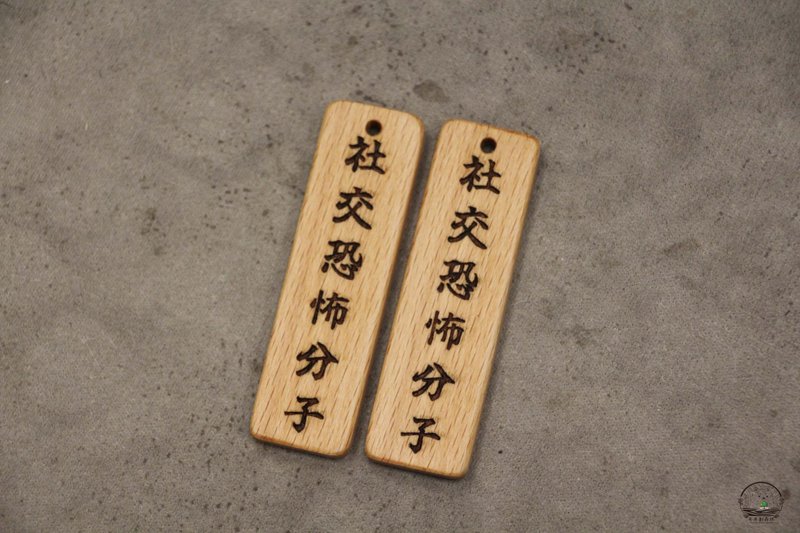 社交恐怖分子
社交恐怖分子